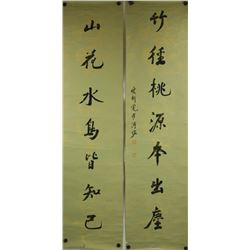 竹径桃源本出塵
山花水鳥皆知己